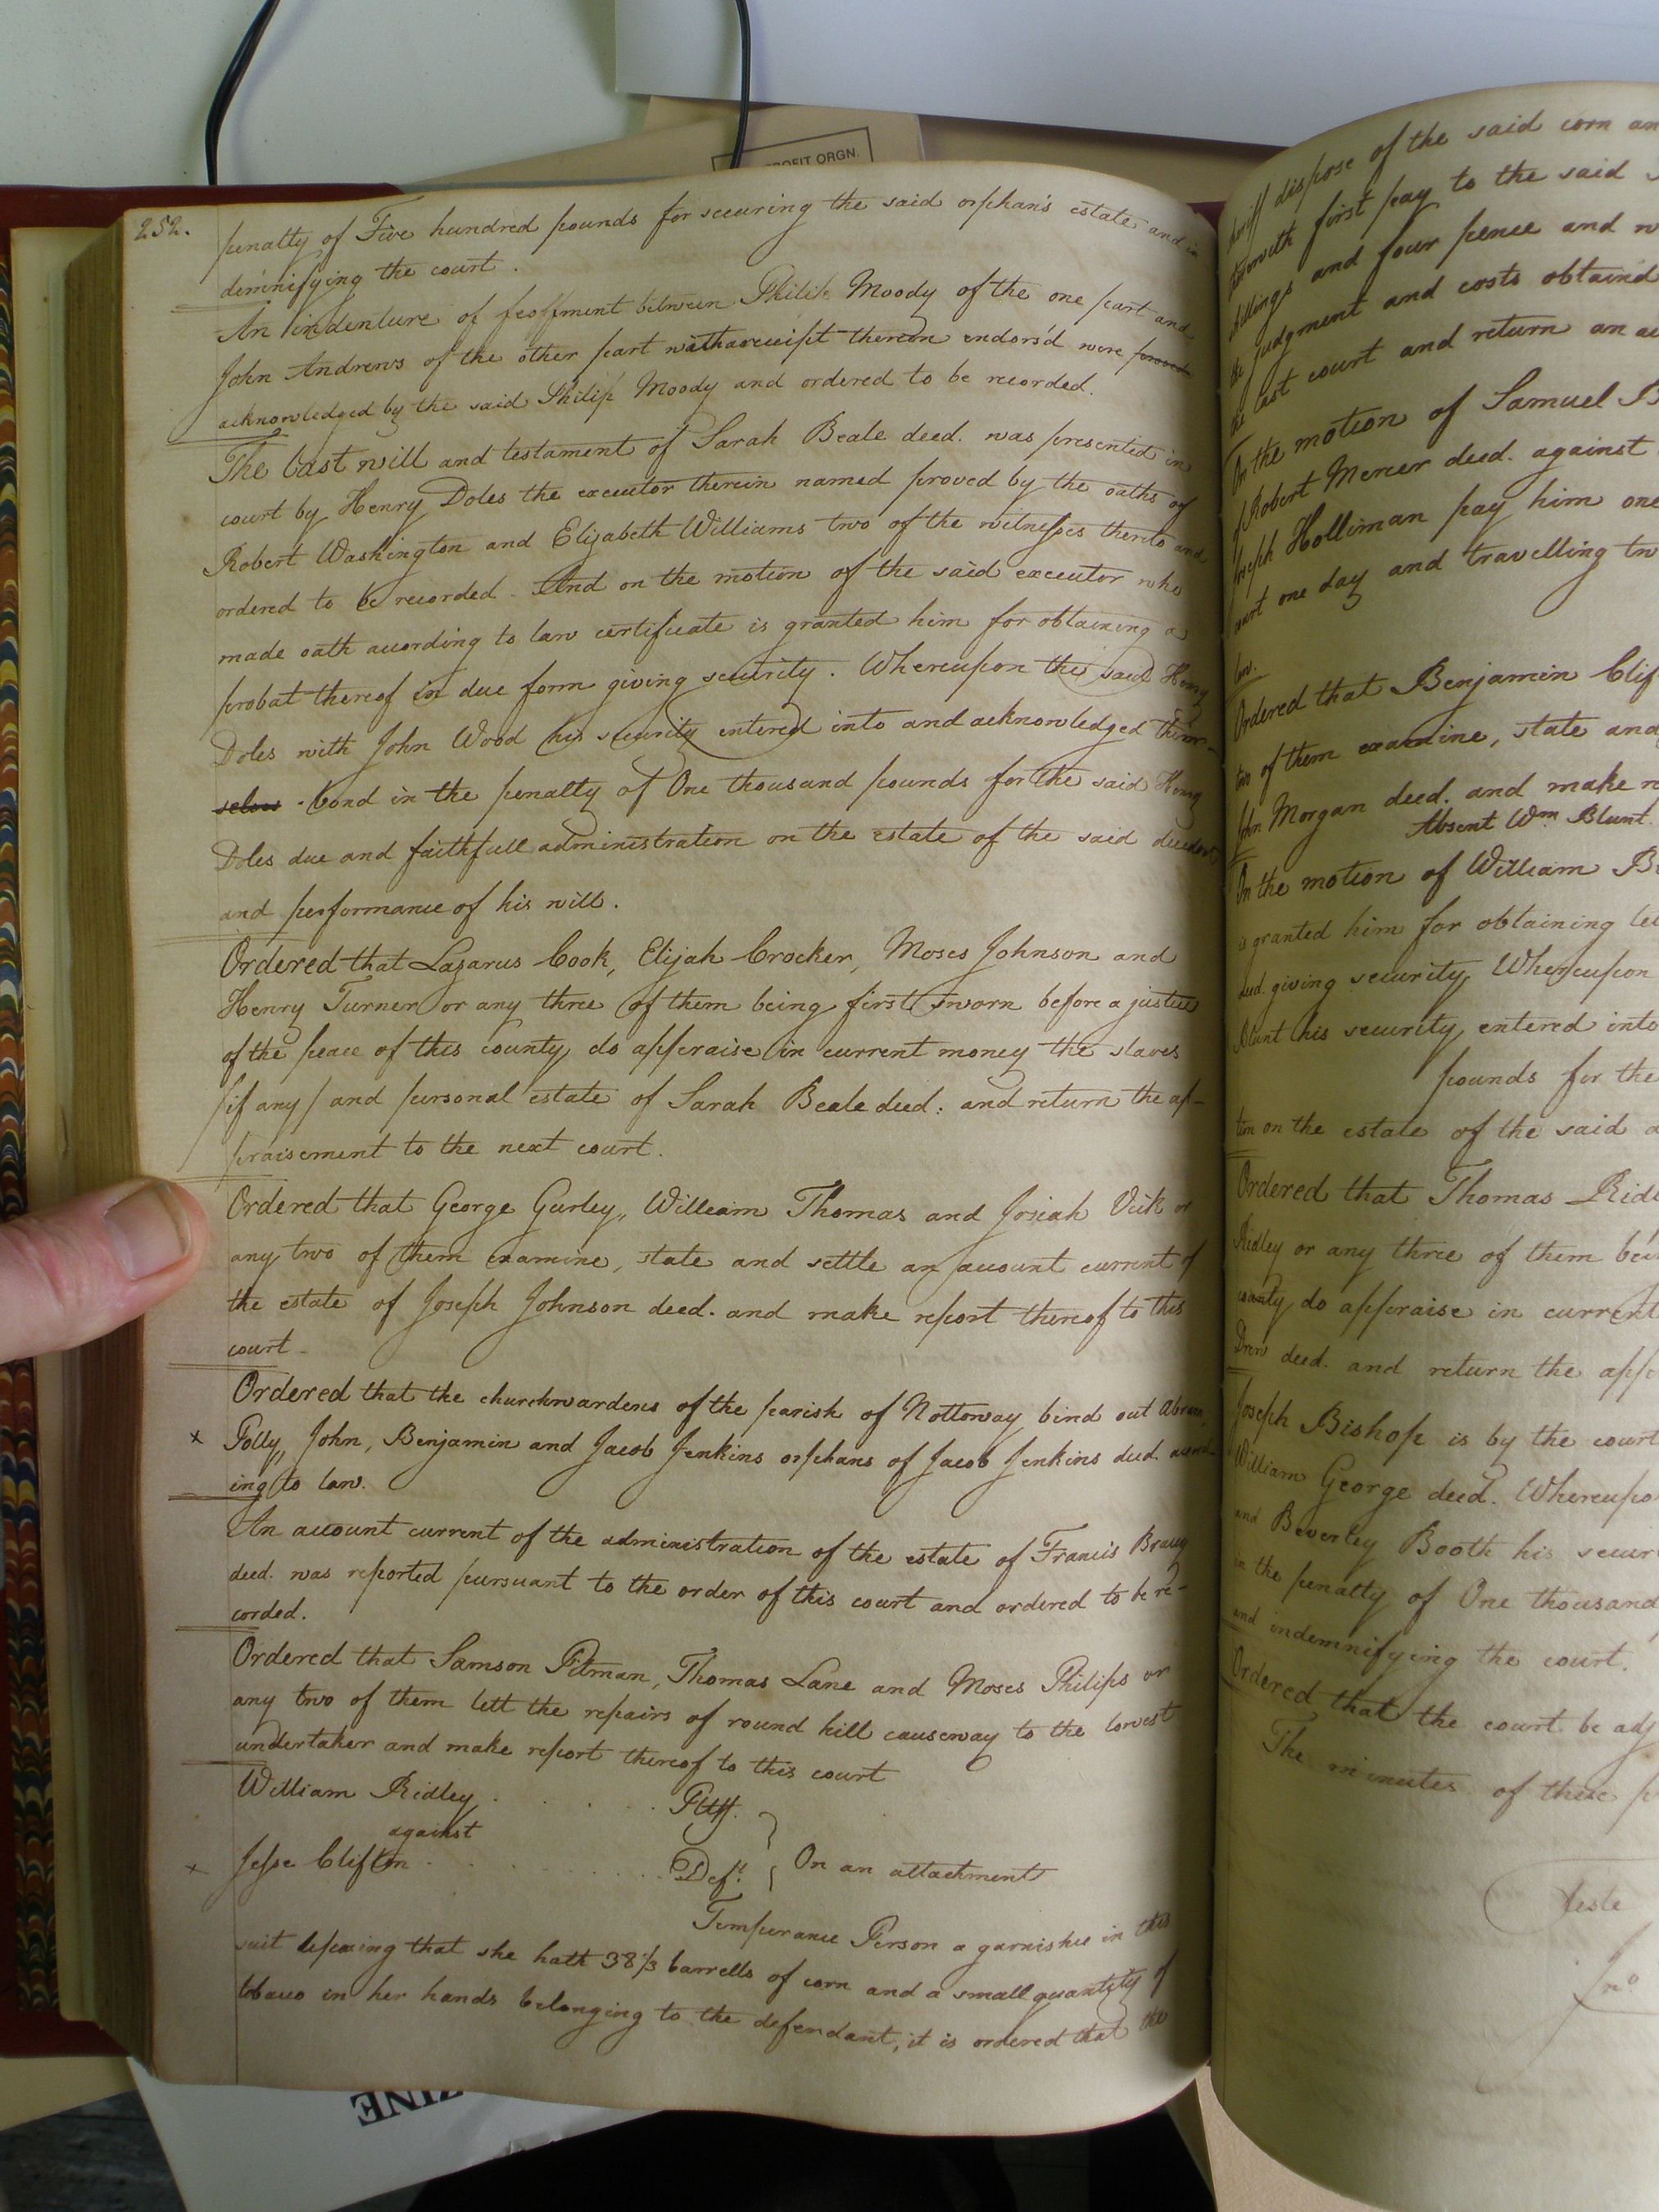 252.
penalty of Five hundred pounds for securing the said orphan's estate and in
demnifying the court.
An indenture of feoffment between Philip Moody of the one part and
John Andrews of the other part with a receipt thereon endors'd were proved
acknowledged by the said Philip Moody and ordered to be recorded.
The last will and testament of Sarah Beale deed. was presented in
court by Henry Doles the executor therein named proved by the oaths of
Robert Washington and Elizabeth Williams two of the witnesses thereto and
ordered to be recorded. And on the motion of the said executor who
made oath according to law certificate is granted him for obtaining a
probat thereof in due form giving security. Whereupon the said Henry
Doles with John Wood his security entered into and acknowledged them-
selves bond in the penalty of One thousand pounds for the said Henry
Doles due and faithfull administration on the estate of the said
and performance of his will.
Ordered that Lazarus Cook, Elijah Crocker, Moses Johnson and
Henry Turner or any three of them being first sworn before a justice
of the peace of this county do appraise in current money the slaves
/if any/ and personal estate of Sarah Beale deed. and return the ap-
praisement to the next court.
Ordered that George Gurley, William Thomas and Josiah Vick or
any two of them examine, state and settle an account current of
the estate of Joseph Johnson deed. and make report thereof to this
court
Ordered that the churchwardens of the parish of Nottoway bind out Abram,
x Polly, John, Benjamin and Jacob Jenkins orphans of Jacob Jenkins deed. accord-
ing to law.
An account current of the administration of the estate of Francis Bracy
deed. was reported pursuant to the order of this court and ordered to be re-
corded.
Ordered that Samson Pitman, Thomas Lane and Moses Philips or
any two of them lett the repairs of round hill causeway to the lowest
undertaker and make report thereof to this court
William Ridley Pltff.
against
x Jesse Clifton Deft. } On an attachment
Temperance Person a garnishee in this
suit deposing that she hath 38 1/3 barrells of corn and a small quantity of
tobacco in her hands belonging to the defendant, it is ordered that the
sheriff dispose of the said corn an
first pay to the said
shillings and four pence and
the judgment and costs obtaind
the last court and return an
On the motion of Samuel B
of Robert Mercer deed. against
Joseph Holliman pay him one
court one day and travelling tw
law.
Ordered that Benjamin Clif
two of them examine, state and
John Morgan deed. and make
Absent Wm Blunt
On the motion of William B
is granted him for obtaining
deed. giving security. Whereupon
Blunt his security entered into
pounds for the
tion on the estate of the said
Ordered that Thomas Ridl
Ridley or any three of them bei
county do appraise in current
Drew deed. and return the app
Joseph Bishop is by the court
William George deed. Whereupo
and Beverley Booth his secur
in the penalty of One thousand
and indemnifying the court.
Ordered that the court be adj
The minutes of these p
Teste
Jno
PROFIT ORGN.
ZINE